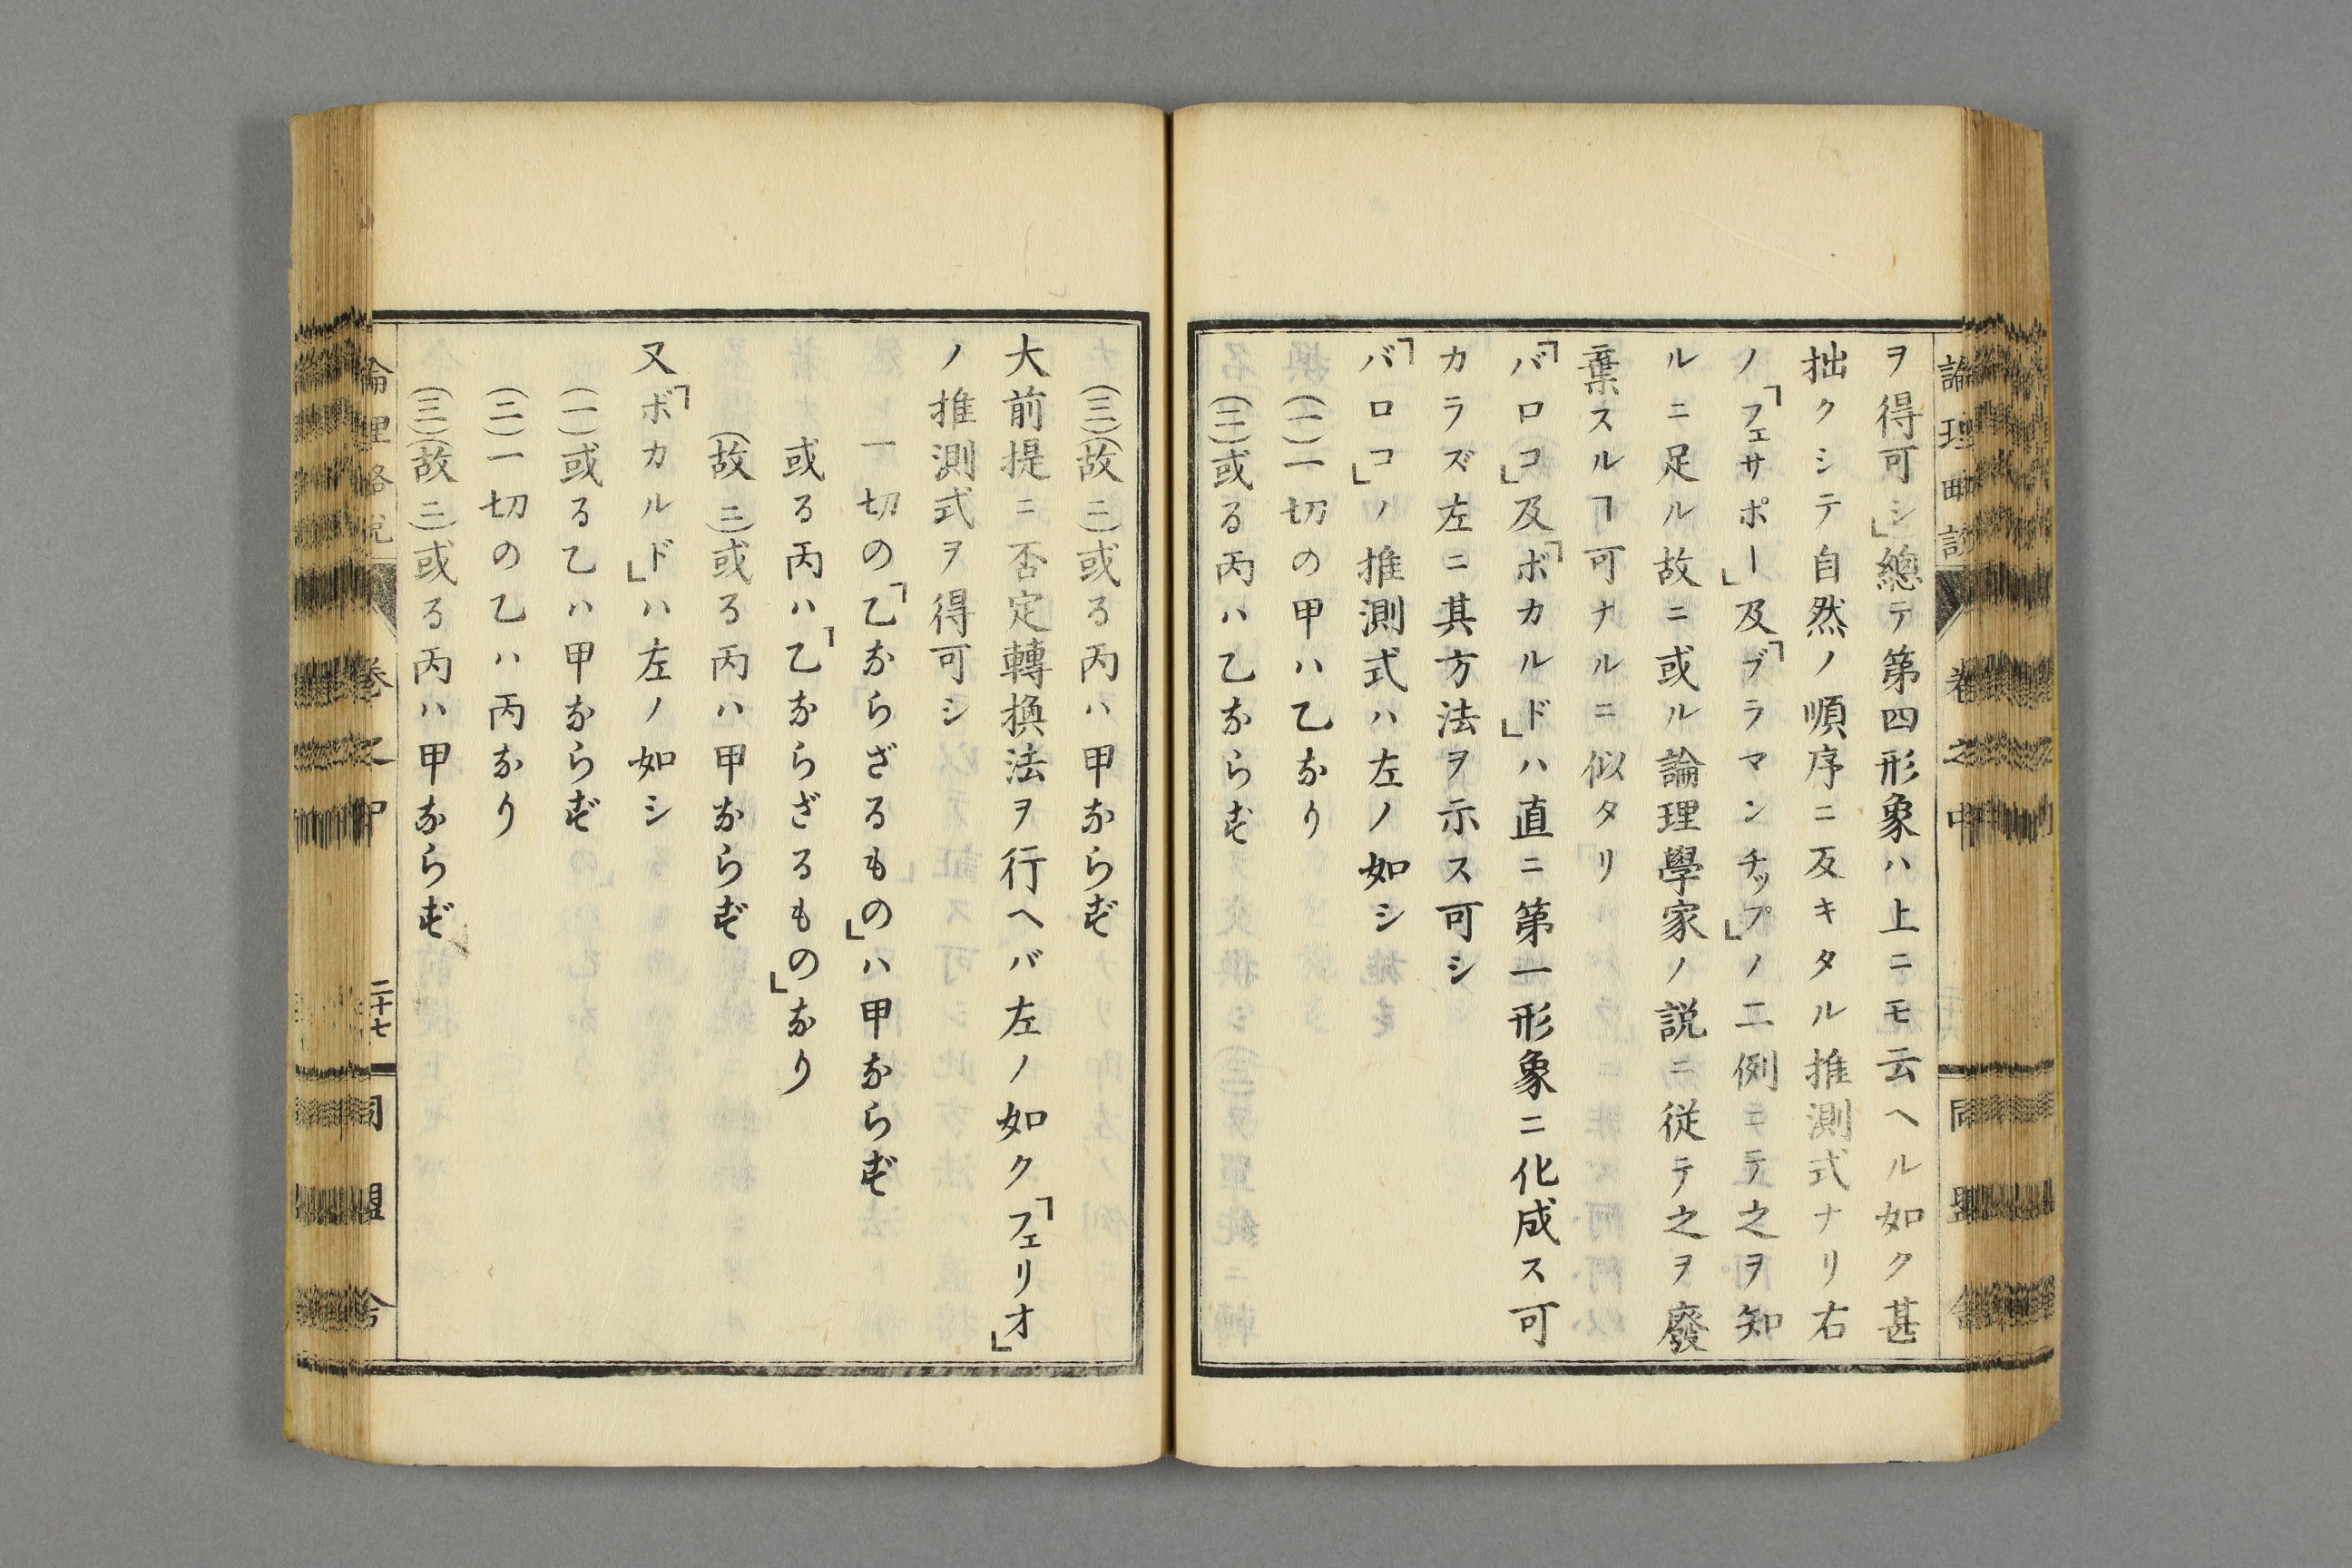 論理略説 卷之中 同盟舎
ヲ得可シ」總テ第四形象ハ上ニモ云ヘル如ク甚
拙クシテ自然ノ順序ニ反キタル推測式ナリ右
ノ「フェサポー」及「ブラマンチップ」ノ二例ニテ之ヲ知
ルニ足ル故ニ或ル論理學家ノ説ニ從テ之ヲ廢
棄スルヿ可ナルニ似タリ
「バロコ」及「ボカルド」ハ直ニ第一形象ニ化成ス可
カラズ左ニ其方法ヲ示ス可シ
「バロコ」ノ推測式ハ左ノ如シ
(一)一切の甲ハ乙なり
(二)或る丙ハ乙ならず
(三)(故ニ)或る丙ハ甲ならず
大前提ニ否定轉換法ヲ行ヘバ左ノ如ク「フェリオ」
ノ推測式ヲ得可シ
一切の「乙ならざるもの」ハ甲ならず
或る丙ハ「乙ならざるもの」なり
(故ニ)或る丙ハ甲ならず
又「ボカルド」ハ左ノ如シ
(一)或る乙ハ甲ならず
(二)一切の乙ハ丙なり
(三)(故ニ)或る丙ハ甲ならず
論理略説 卷之中 二十七 同盟舎